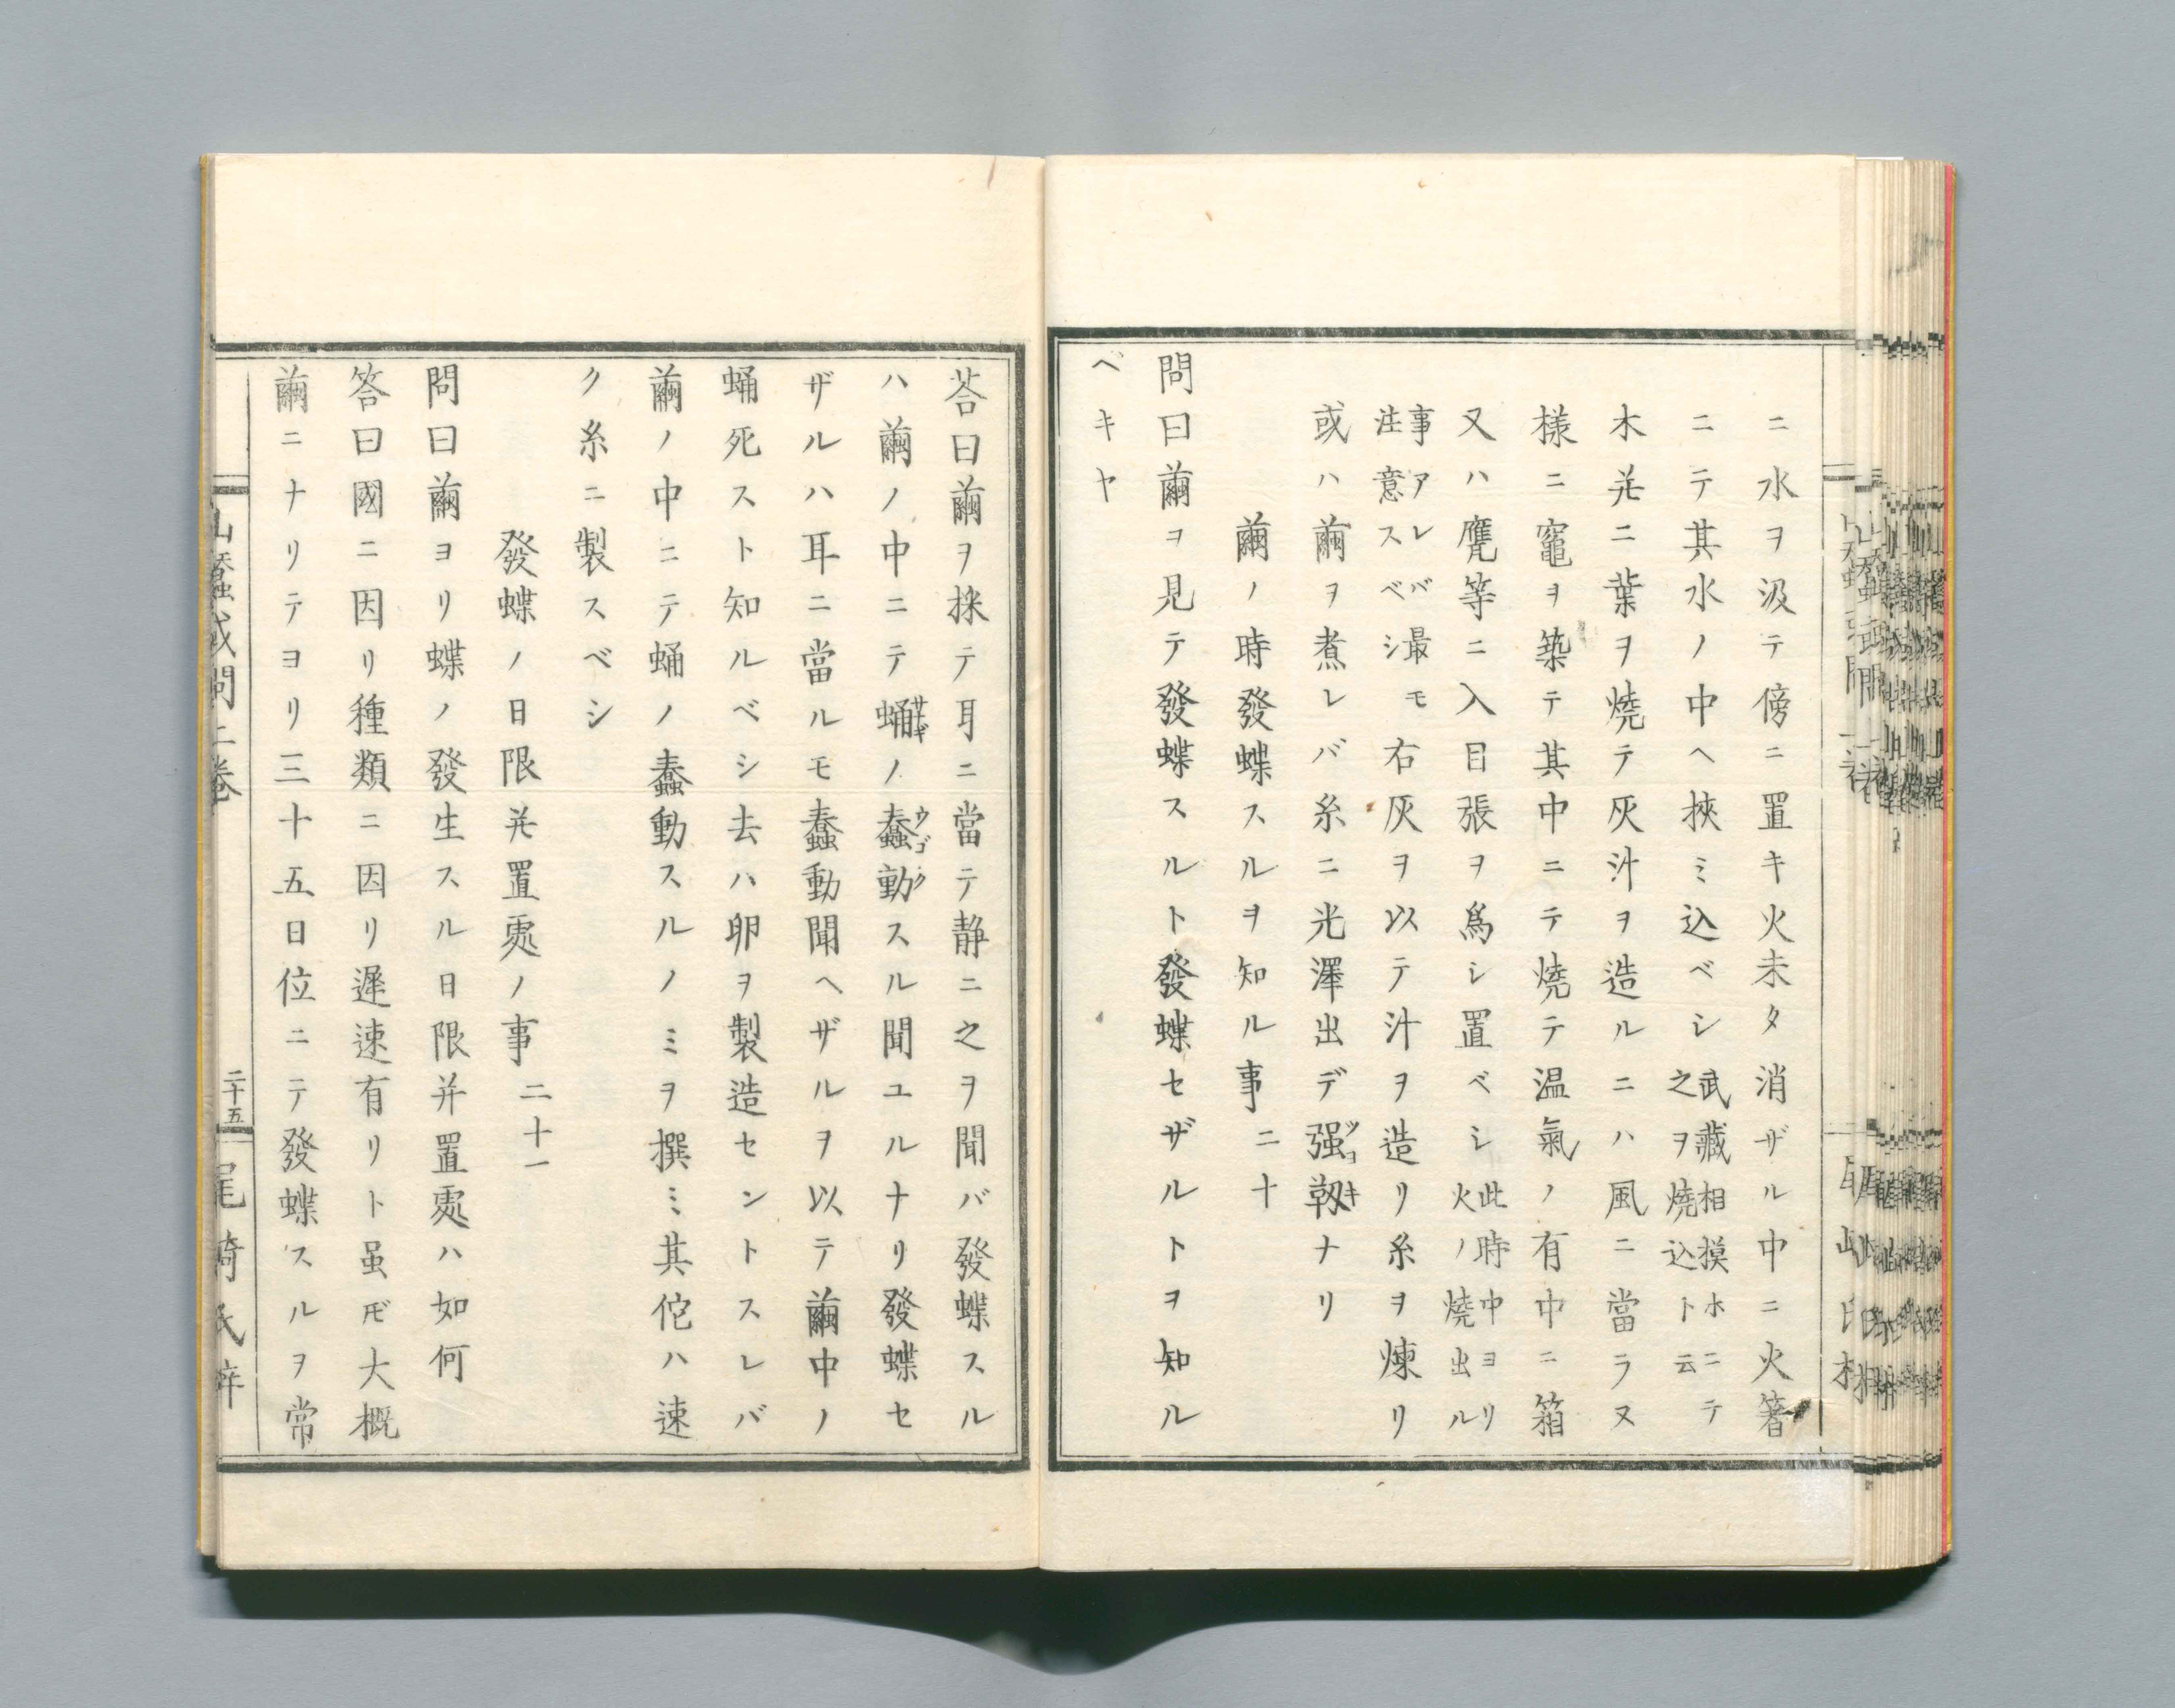 ニ水ヲ汲テ傍ニ置キ火未タ消ザル中ニ火箸
ニテ其水ノ中ヘ挾ミ込ベシ武藏相摸ホニテ之ヲ燒込ト云
木茺ニ葉ヲ燒テ灰汁ヲ造ルニハ風ニ當ラヌ
樣ニ竈ヲ築テ其中ニテ燒テ温氣ノ有中ニ箱
又ハ甕等ニ入目張ヲ爲シ置ベシ此時中ヨリ火ノ燒出ル
事アレバ最モ注意スベシ右灰ヲ以テ汁ヲ造リ糸ヲ煉リ
或ハ繭ヲ煮レバ糸ニ光澤出デ强靱ナリ
繭ノ時發蝶スルヲ知ル事 二十
問曰繭ヲ見テ發蝶スルト發蝶セザルトヲ知ル
ベキヤ
荅曰繭ヲ採テ耳ニ當テ静ニ之ヲ聞バ發蝶スル
ハ繭ノ中ニテ蛹ノ蠢動スル聞ユルナリ發蝶セ
ザルハ耳ニ當ルモ蠢動聞ヘザルヲ以テ繭中ノ
蛹死スト知ルベシ去ハ卵ヲ製造セントスレバ
繭ノ中ニテ蛹ノ蠢動スルノミヲ撰ミ其佗ハ速
ク糸ニ製スベシ
發蝶ノ日限茺置處ノ事 二十一
問曰繭ヨリ蝶ノ發生スル日限并置處ハ如何
答曰國ニ因リ種類ニ因リ遲速有リト虽𪜈大概
繭ニナリテヨリ三十五日位ニテ發蝶スルヲ常
山蠶或問上卷 二十五 尾﨑氏梓